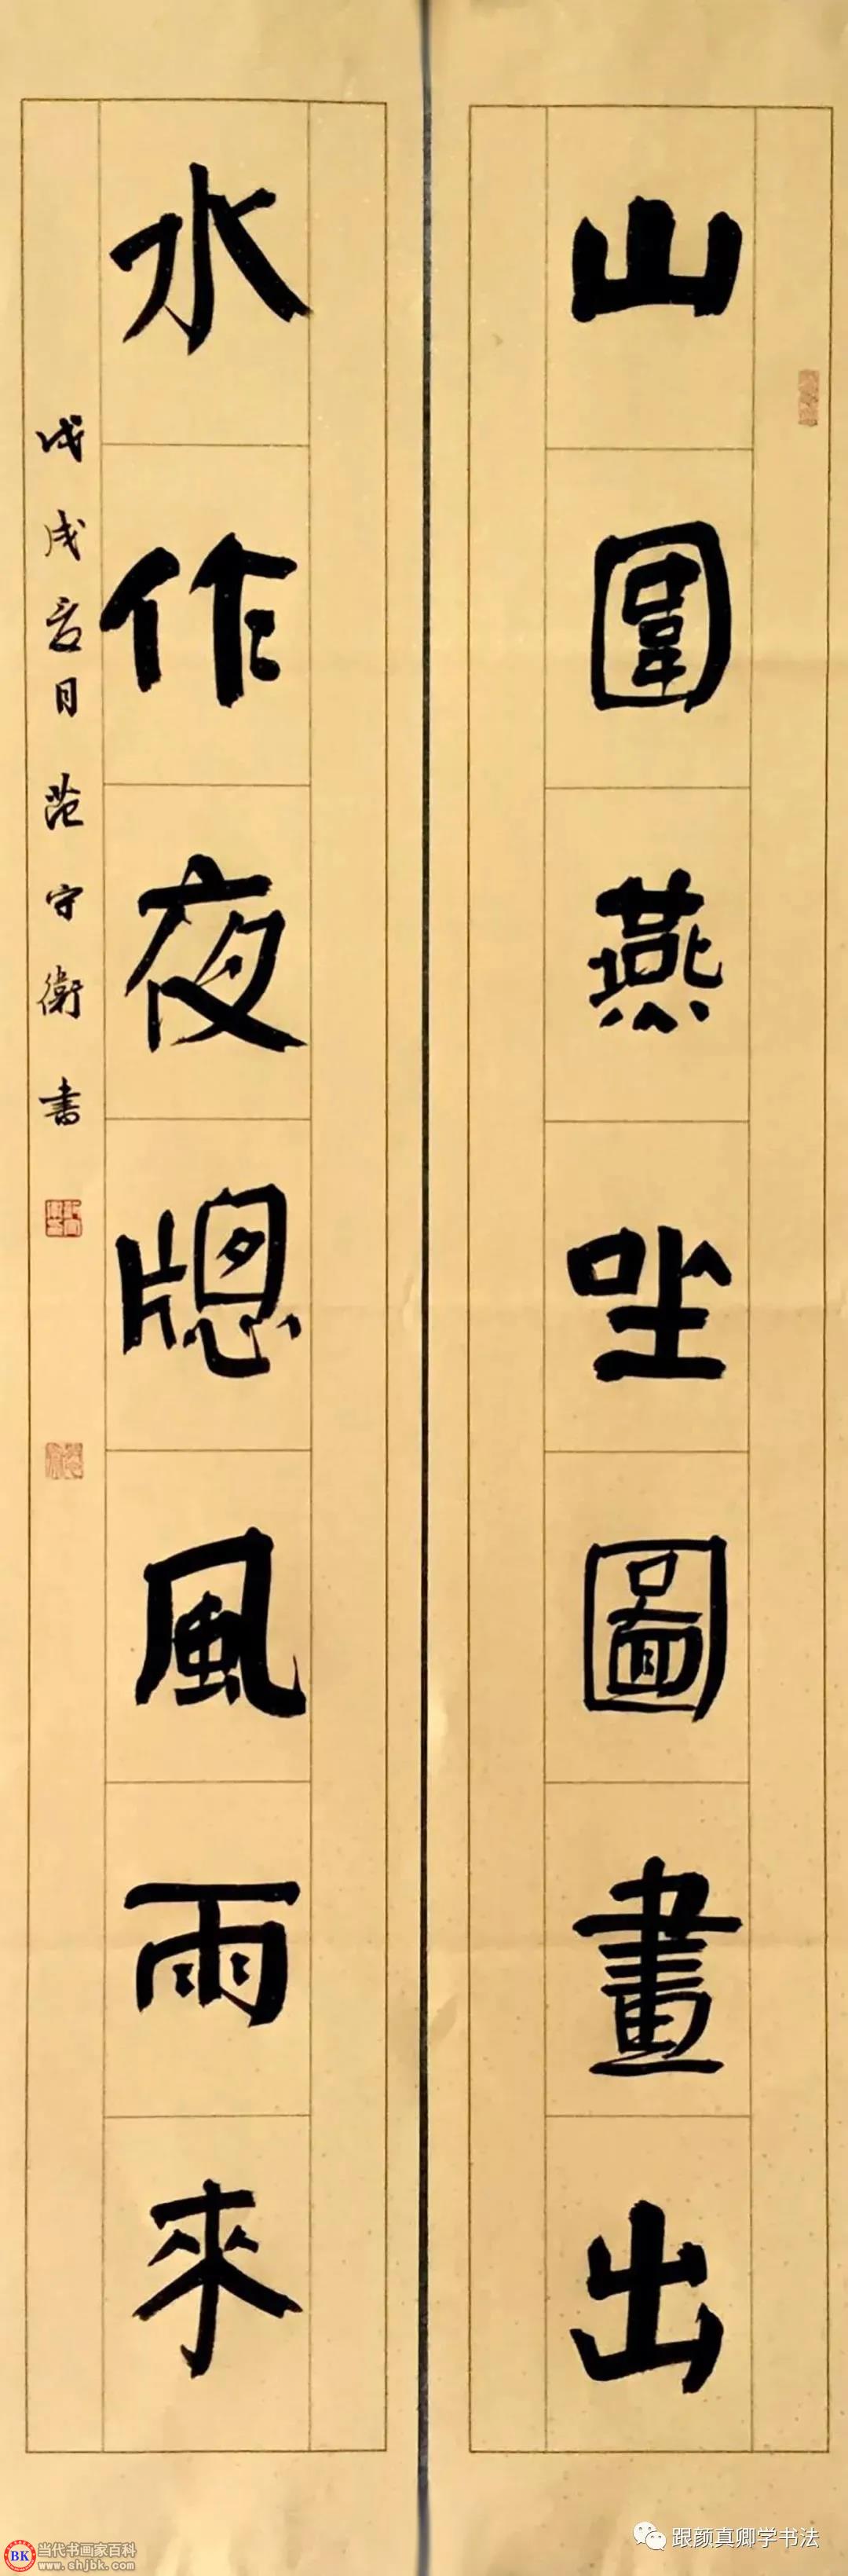 山圍燕坐圖畫出
水作夜牕風雨來
戊戌夏月范守衛书
跟颜真卿学书法
BK 当代书画家百科
www.shjbk.com